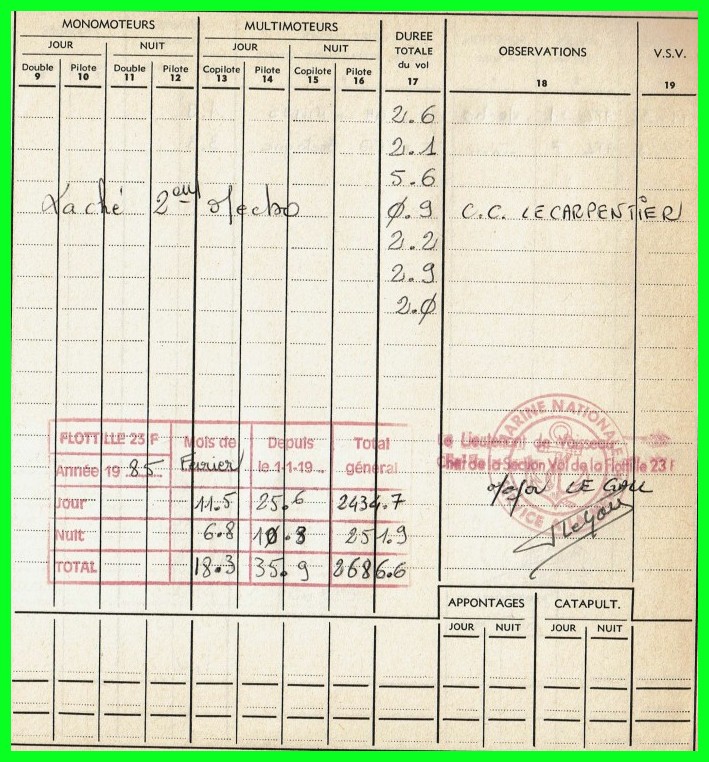 MONOMOTEURS MULTIMOTEURS DUREE TOTALE du vol OBSERVATIONS V.S.V.
JOUR NUIT JOUR NUIT
Double Pilote Double Pilote Copilote Pilote Copilote Pilote
9 10 11 12 13 14 15 16 17 18 19
2.6
2.1
5.6
Laché 2eme mecbo 0.9 C.C. LECARPENTIER
2.2
2.9
2.0
MARINE NATIONALE
FLOTTILLE 23 F Mois de Depuis Total
Le Lieutenant de Vaisseau
Année 1985 Février le 1-1-19... général
Chef de la Section Vol de la Flottille 23 F
Jour 11.5 25.6 2434.7
Major LE GALL
Nuit 6.8 10.3 251.9
TOTAL 18.3 35.9 2686.6
APPONTAGES CATAPULT.
JOUR NUIT JOUR NUIT